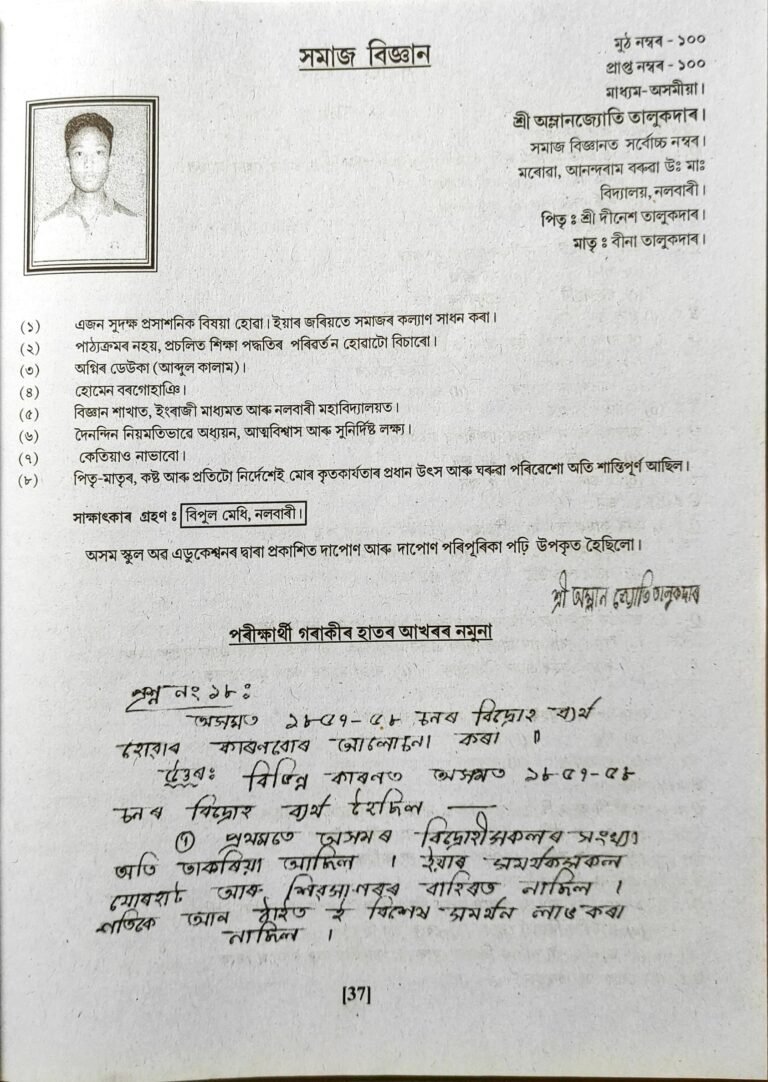 সমাজ বিজ্ঞান
মুঠ নম্বৰ - ১০০
প্ৰাপ্ত নম্বৰ - ১০০
মাধ্যম-অসমীয়া।
শ্ৰী অম্লানজ্যোতি তালুকদাৰ।
সমাজ বিজ্ঞানত সৰ্বোচ্চ নম্বৰ।
মৰোৱা, আনন্দৰাম বৰুৱা উঃ মাঃ
বিদ্যালয়, নলবাৰী।
পিতৃ ঃ শ্ৰী দীনেশ তালুকদাৰ।
মাতৃ ঃ বীনা তালুকদাৰ।
(১) এজন সুদক্ষ প্ৰসাশনিক বিষয়া হোৱা। ইয়াৰ জৰিয়তে সমাজৰ কল্যাণ সাধন কৰা।
(২) পাঠ্যক্ৰমৰ নহয়, প্ৰচলিত শিক্ষা পদ্ধতিৰ পৰিৱৰ্তন হোৱাটো বিচাৰো।
(৩) অগ্নিৰ ডেউকা (আব্দুল কালাম)।
(৪) হোমেন বৰগোহাঞি।
(৫) বিজ্ঞান শাখাত, ইংৰাজী মাধ্যমত আৰু নলবাৰী মহাবিদ্যালয়ত।
(৬) দৈনন্দিন নিয়মতিভাৱে অধ্যয়ন, আত্মবিশ্বাস আৰু সুনিৰ্দিষ্ট লক্ষ্য।
(৭) কেতিয়াও নাভাবো।
(৮) পিতৃ-মাতৃৰ, কষ্ট আৰু প্ৰতিটো নিৰ্দেশেই মোৰ কৃতকাৰ্যতাৰ প্ৰধান উৎস আৰু ঘৰুৱা পৰিৱেশো অতি শান্তিপূৰ্ণ আছিল।
সাক্ষাৎকাৰ গ্ৰহণ ঃ বিপুল মেধি, নলবাৰী।
অসম স্কুল অৱ এডুকেশ্বনৰ দ্বাৰা প্ৰকাশিত দাপোণ আৰু দাপোণ পৰিপূৰিকা পঢ়ি উপকৃত হৈছিলো।
শ্ৰী অম্লান জ্যোতি তালুকদাৰ
পৰীক্ষাৰ্থী গৰাকীৰ হাতৰ আখৰৰ নমুনা
প্ৰশ্ন নং ১৮ ঃ
অসমত ১৮৫৭-৫৮ চনৰ বিদ্ৰোহ ব্যৰ্থ
হোৱাৰ কাৰণবোৰ আলোচনা কৰা।
উত্তৰঃ বিভিন্ন কাৰনত অসমত ১৮৫৭-৫৮
চনৰ বিদ্ৰোহ ব্যৰ্থ হৈছিল —
① প্ৰথমতে অসমৰ বিদ্ৰোহীসকলৰ সংখ্যা
অতি তাকৰিয়া আছিল । ইয়াৰ সমৰ্থকসকল
যোৰহাট আৰু শিৱসাগৰৰ বাহিৰত নাছিল ।
গতিকে আন ঠাইত ই বিশেষ সমৰ্থন লাভ কৰা
নাছিল ।
[37]